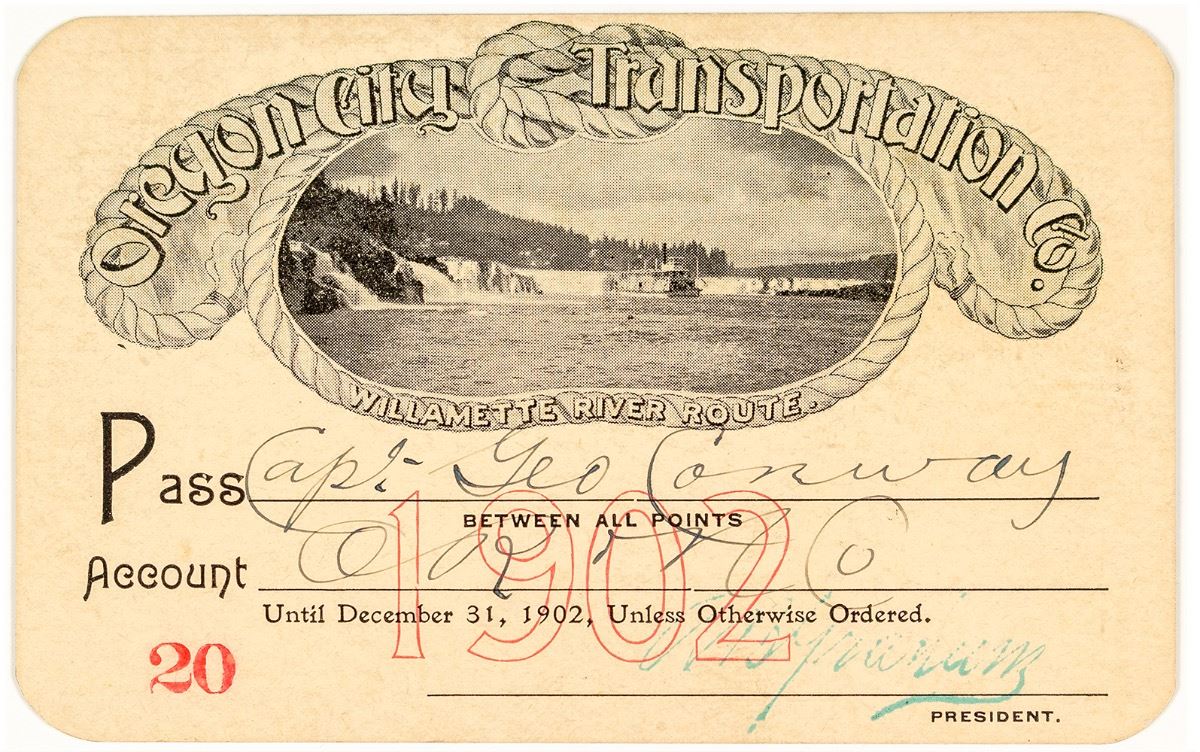 Oregon City Transportation Co.
WILLAMETTE RIVER ROUTE.
Pass Capt. Geo Conway
BETWEEN ALL POINTS
1902
Account O R & N Co
Until December 31, 1902, Unless Otherwise Ordered.
20
PRESIDENT.